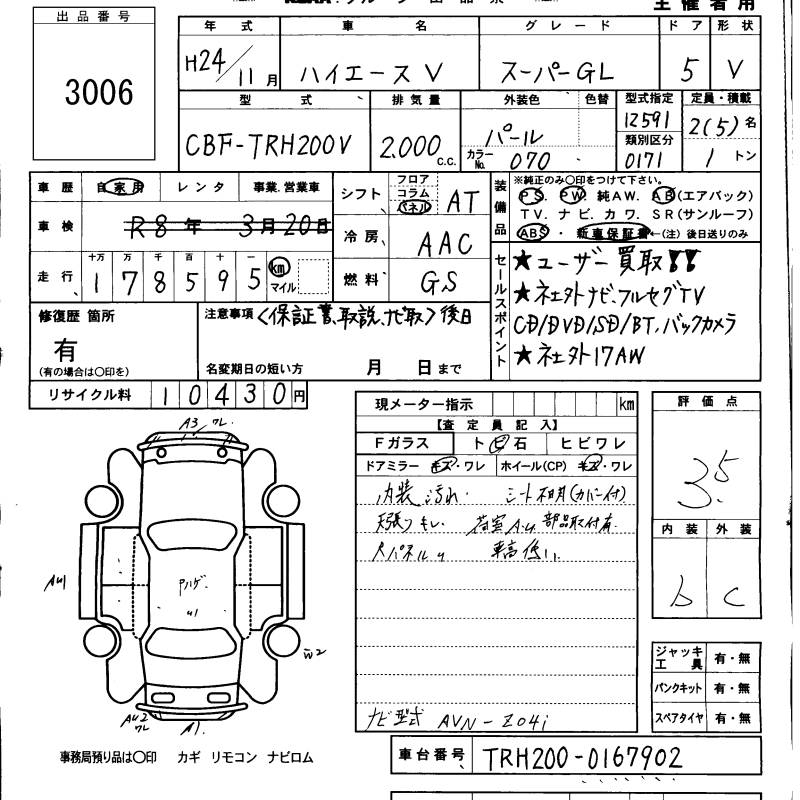 主催者用
出品番号
3006
年式 車名 グレード ドア 形状
H24/11月 ハイエースV スーパーGL 5 V
型式 排気量 外装色 色替 型式指定 定員・積載
CBF-TRH200V 2,000 c.c. パール 12591 2(5)名
カラーNo. 070 類別区分 0171 1トン
車歴 自家用 レンタ 事業.営業車
車検 R8年3月20日
走行 十万 万 千 百 十 一
178595 km マイル
シフト フロア コラム パネル AT
冷房 AAC
燃料 GS
装備品
※純正のみ○印をつけて下さい。
PS. PW. 純AW. AB(エアバック)
TV. ナビ. カワ. SR(サンルーフ)
ABS・新車保証書←(注)後日送りのみ
セールスポイント
★ユーザー買取!!
★ネェ外ナビ、フルセグTV
CD/DVD/SD/BT、バックカメラ
★ネェ外17AW
修復歴 箇所
有
(有の場合は○印を)
注意事項 <保証書、取説、ナビ取>後日
名変期日の短い方 月 日まで
リサイクル料 10430円
現メーター指示 km
【査定員記入】
Fガラス トビ石 ヒビワレ
ドアミラー キズ・ワレ ホイール(CP) キズ・ワレ
内装汚れ.
天張りキレ.
車高低い
ナビ型式 AVN-Z04i
評価点
3.5
内装 外装
b c
ジャッキ工具 有・無
パンクキット 有・無
スペアタイヤ 有・無
A3 ワレ.
AU1
Pハゲ
U1
W2
AU2
ワレ
A1.
事務局預り品は○印 カギ リモコン ナビロム
車台番号 TRH200-0167902